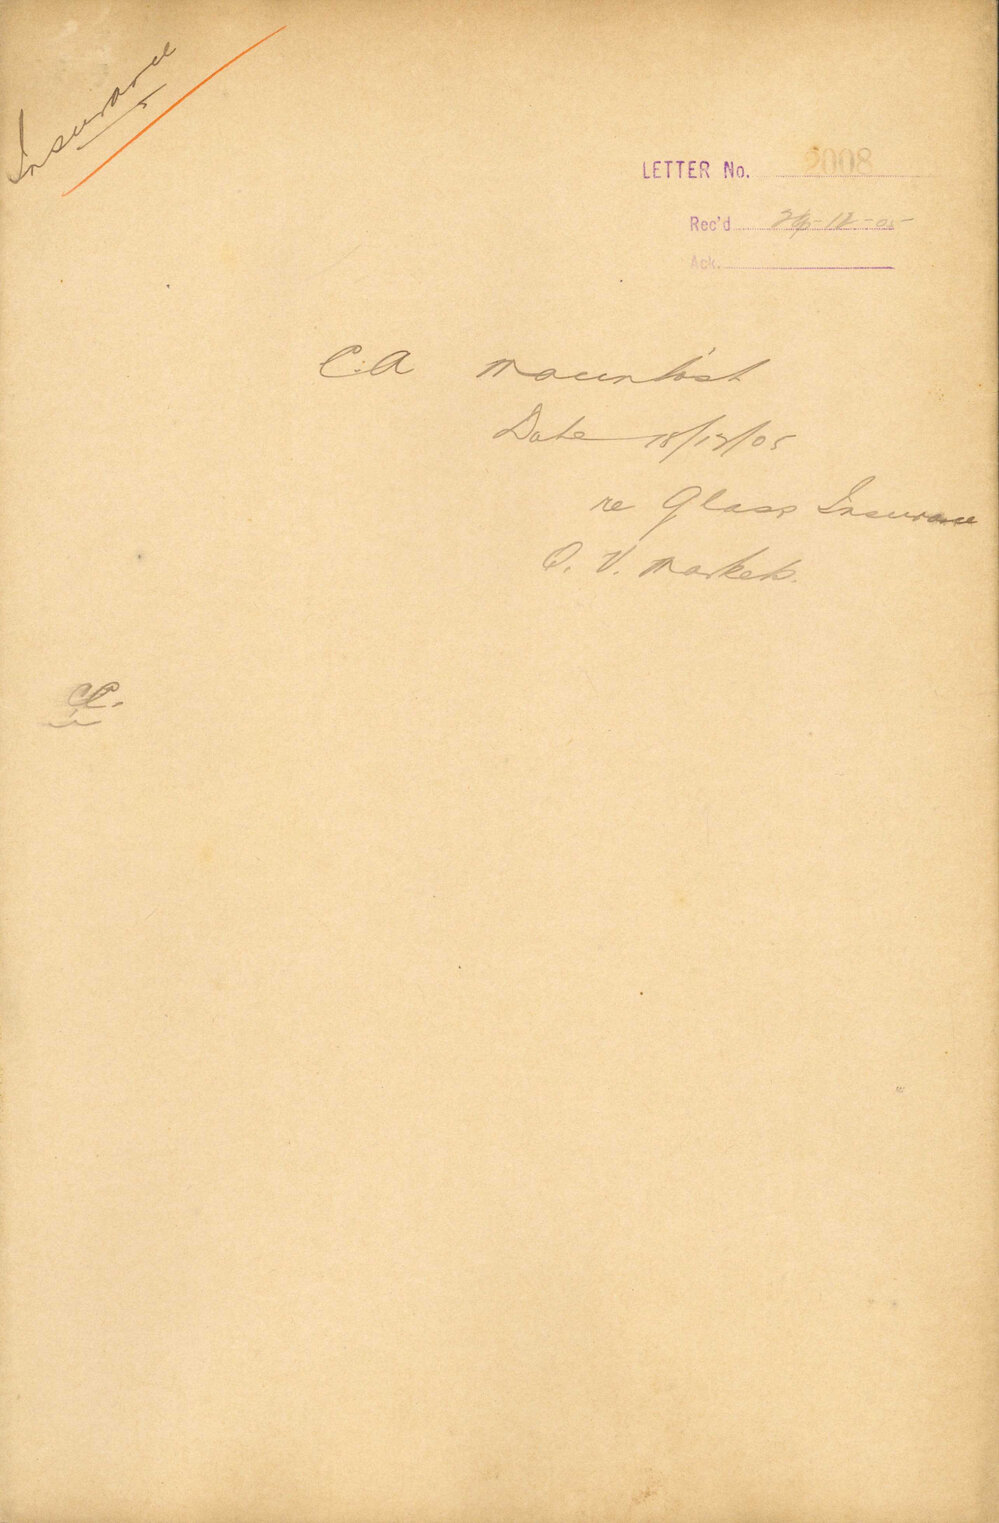 Insurance
LETTER No. 2008
Rec'd 26-12-05
Ack.
C.A Macintosh
Date 18/12/05
re Glass Insurance
Q. V. Markets.